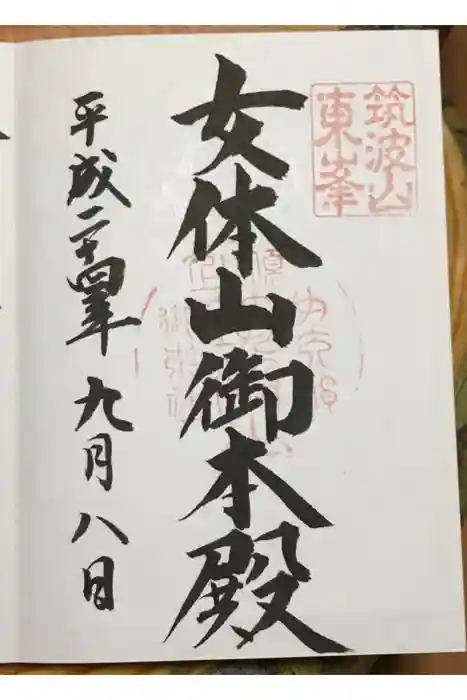 筑波山
東峯
女体山御本殿
平成二十四年九月八日